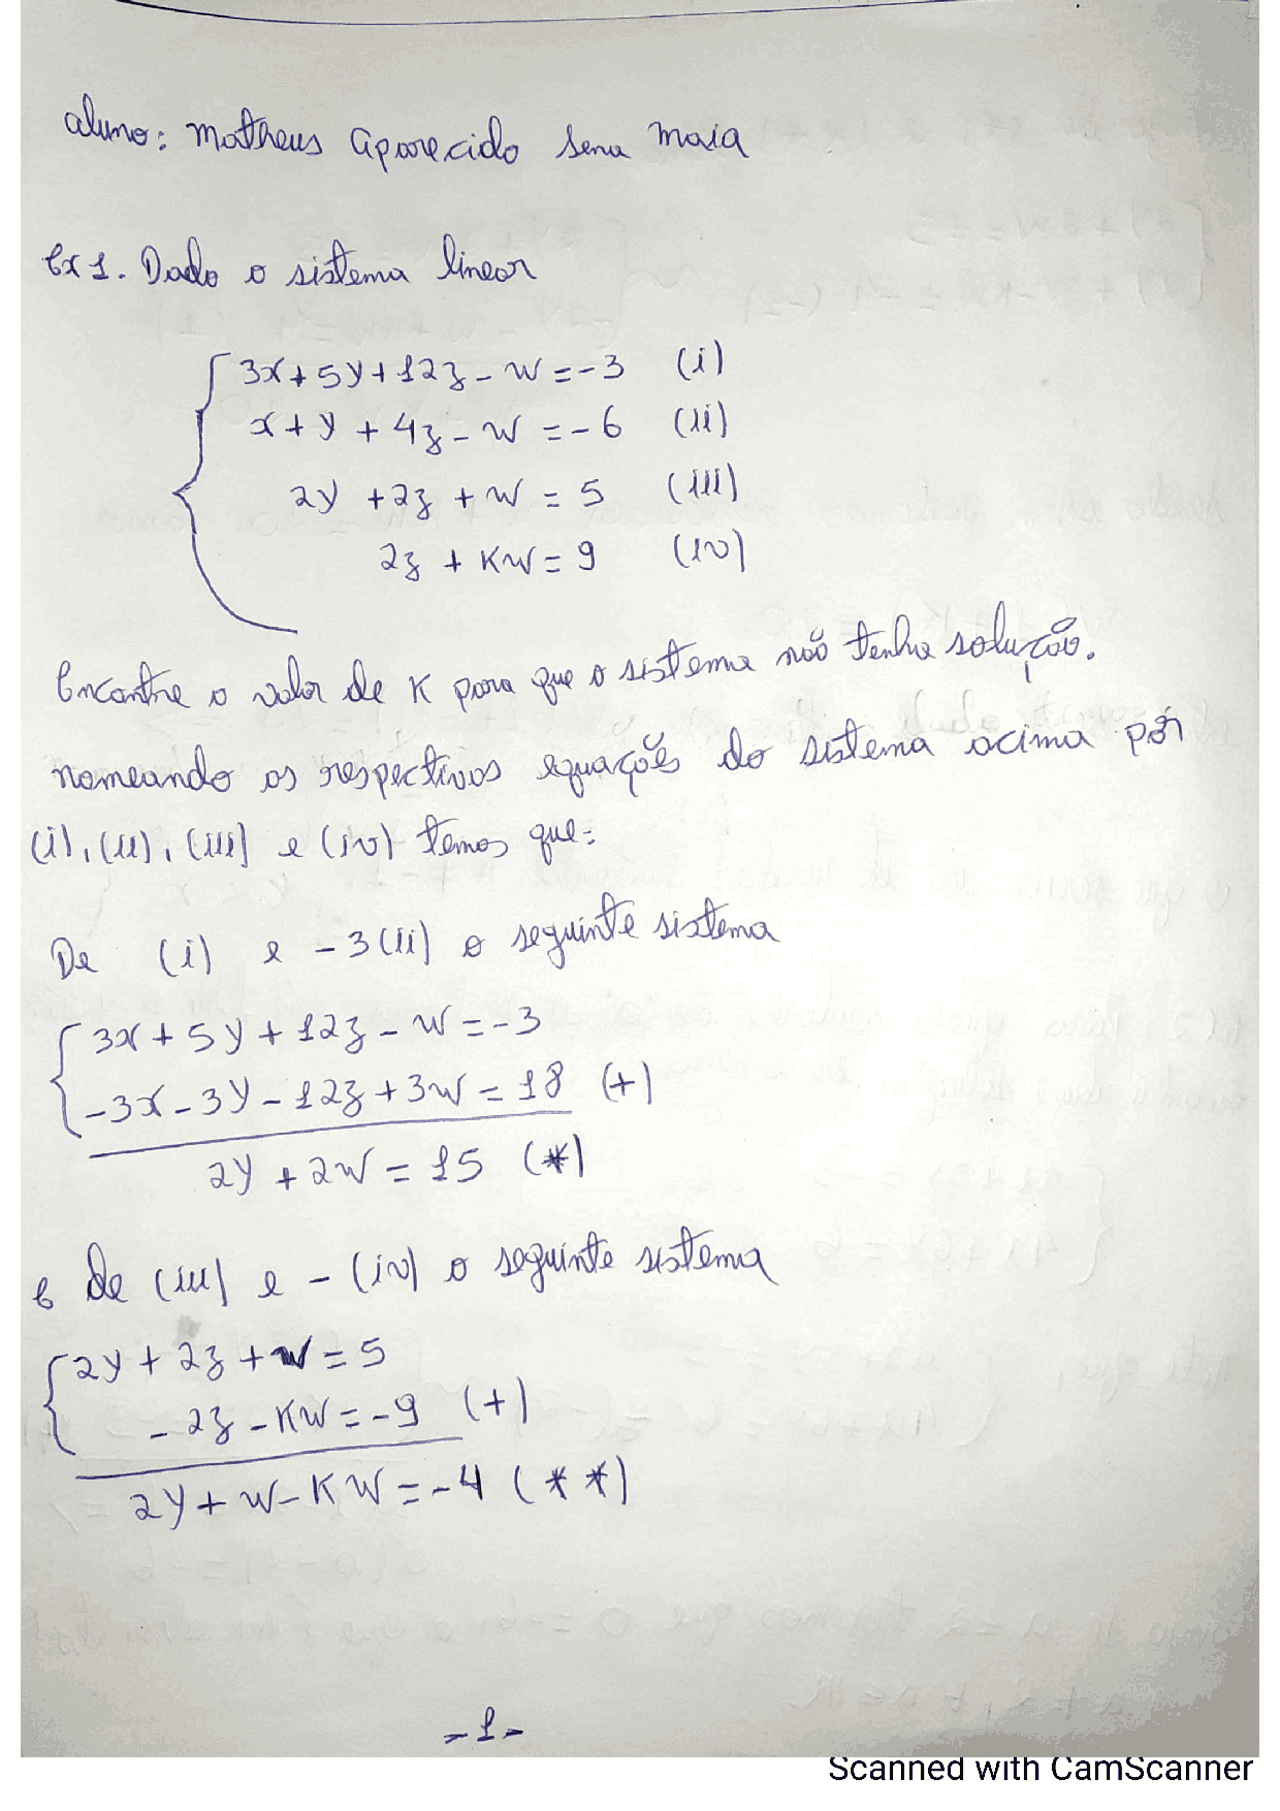 aluno: Matheus Aparecido Sena Maia
Ex 1. Dado o sistema linear
3x + 5y + 12z - w = -3 (i)
x + y + 4z - w = -6 (ii)
2y + 2z + w = 5 (iii)
2z + kw = 9 (iv)
Encontre o valor de k para que o sistema não tenha solução.
nomeando as respectivas equações do sistema acima por
(i), (ii), (iii) e (iv) temos que:
De (i) e -3(ii) o seguinte sistema
3x + 5y + 12z - w = -3
-3x - 3y - 12z + 3w = 18 (+)
2y + 2w = 15 (*)
E de (iii) e -(iv) o seguinte sistema
2y + 2z + w = 5
-2z - kw = -9 (+)
2y + w - kw = -4 (**)
-1-
Scanned with CamScanner